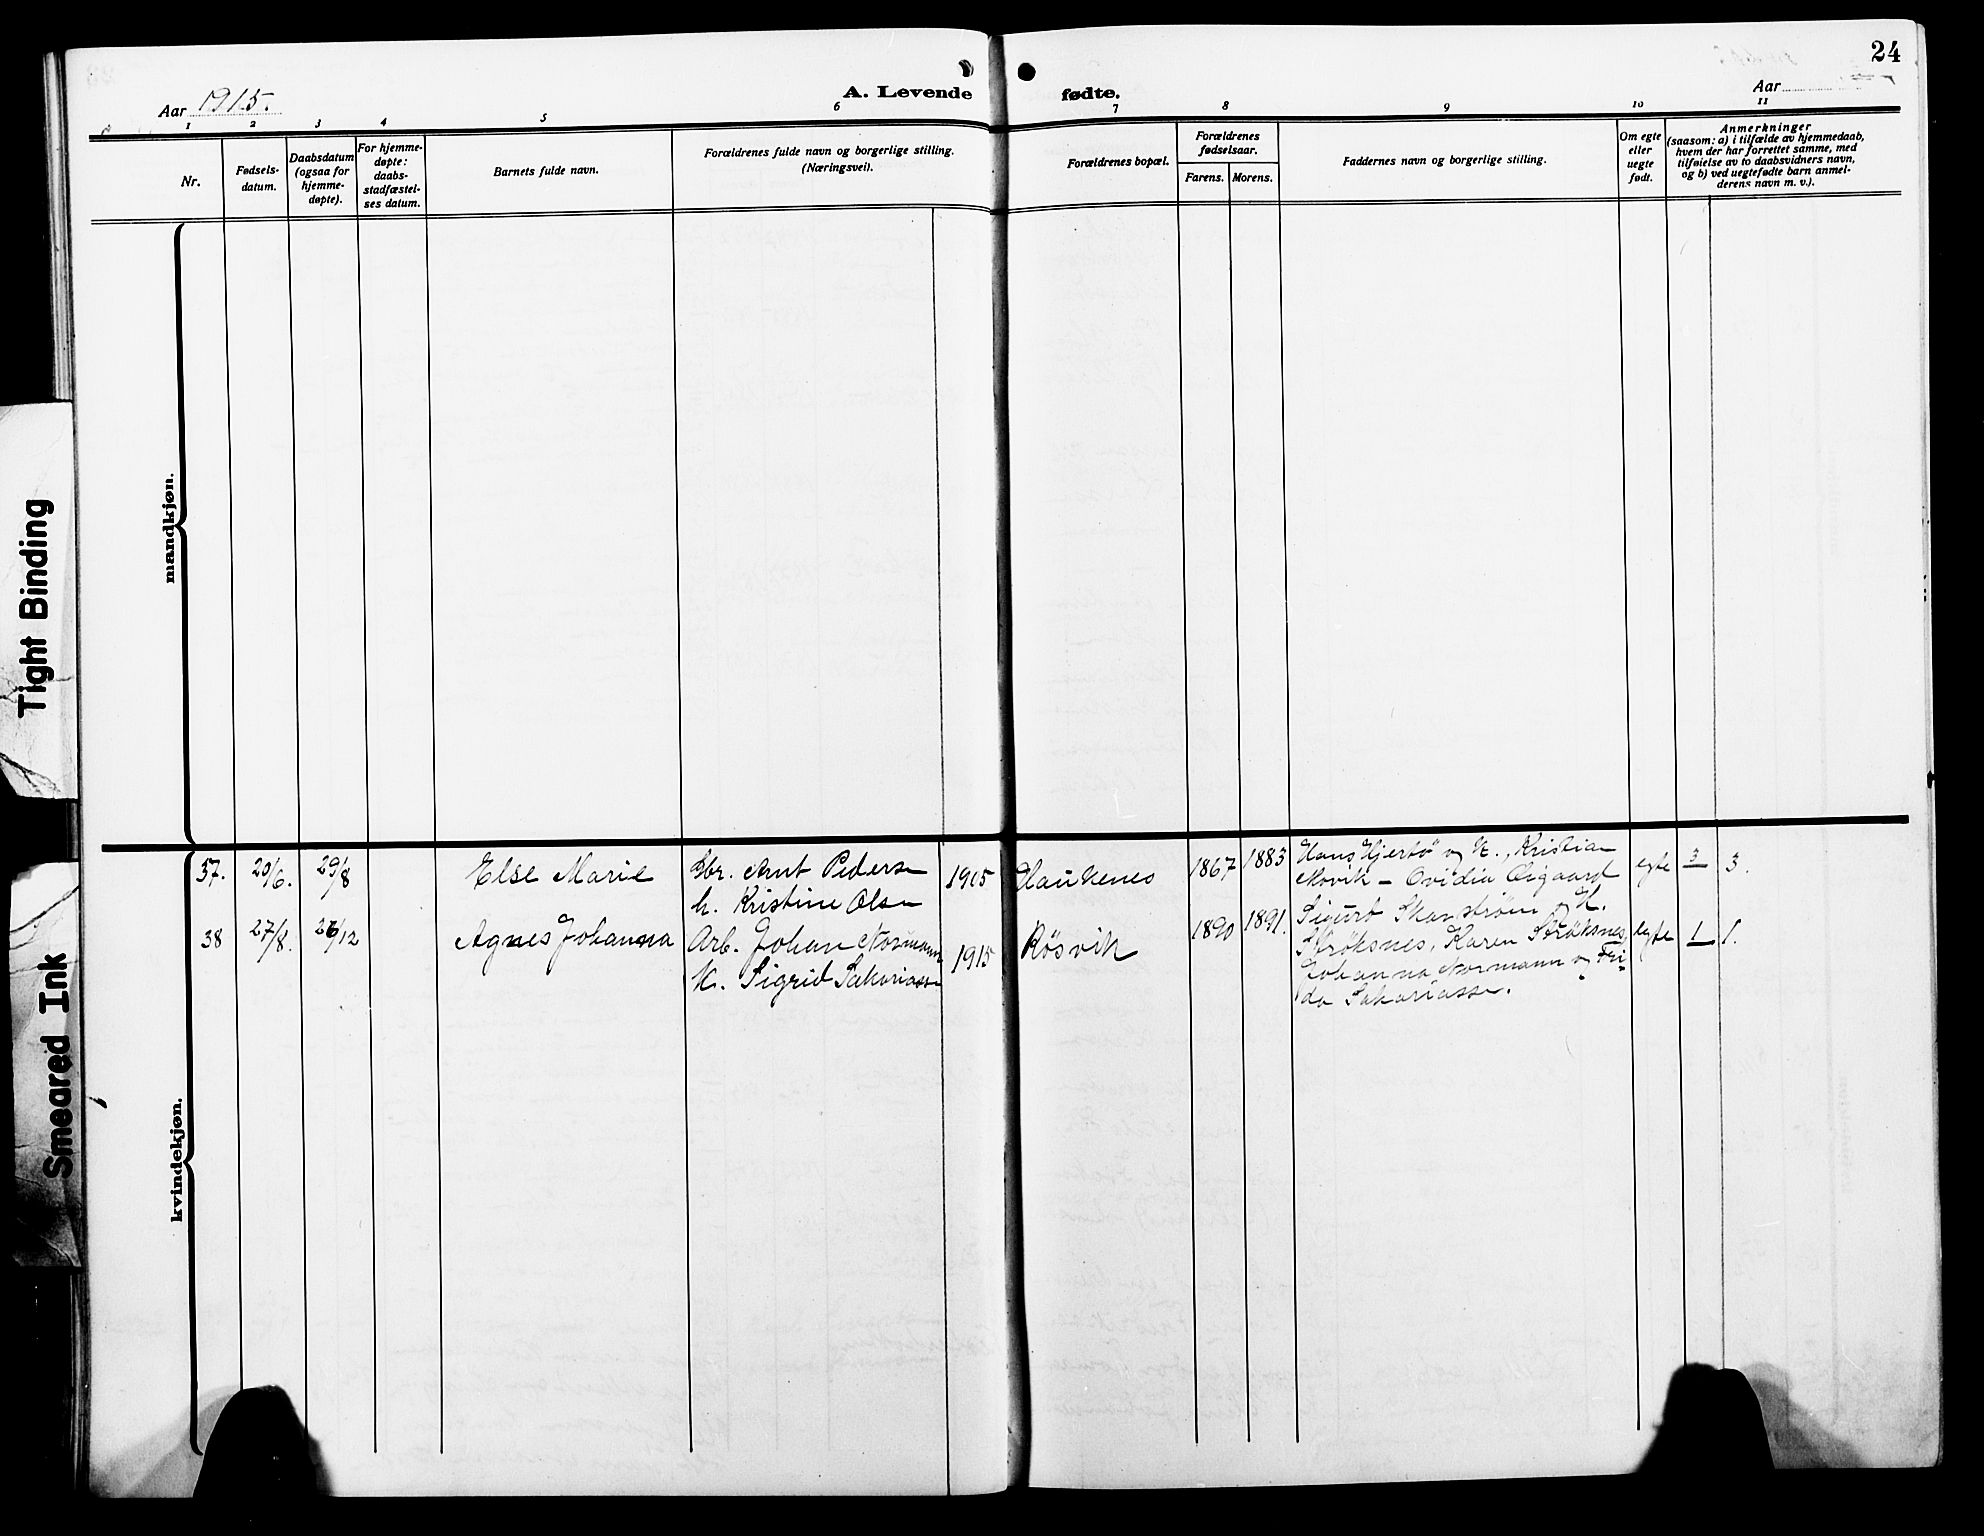 24
Aar 1915.
A. Levende fødte.
Aar
1 2 3 4 5 6 7 8 9 10 11
Nr.
Fødsels-
datum.
Daabsdatum
(ogsaa for
hjemme-
døpte).
For hjemme-
døpte:
daabs-
stadfæstel-
ses datum.
Barnets fulde navn.
Forældrenes fulde navn og borgerlige stilling.
(Næringsvei).
Forældrenes bopæl.
Forældrenes
fødselsaar.
Farens. Morens.
Faddernes navn og borgerlige stilling.
Om egte
eller
uegte
født.
Anmerkninger
(saasom: a) i tilfælde av hjemmedaab,
hvem der har forrettet samme, med
tilføielse av to daabsvidners navn,
og b) ved uegtefødte barn anmel-
derens navn m. v.).
mandkjøn.
kvindekjøn.
37. 20/6. 29/8 Else Marie
Gbr. Arnt Pedersen
h. Kristine Olsen
1905 Haukenes 1867 1883
Hans Hjertø og H., Kristian
Movik - Ovidia Osgaard
egte 3 3.
38 27/8. 26/12 Agnes Johanna
Arb. Johan Normann
H. Sigrid Sakariassen
1915 Røsvik 1890 1891.
Sigurd Skarstrøm og H.
Strøksnes, Karen Strøksnes,
Johanna Normann og Fri-
da Sakariassen.
egte 1 1.
Tight Binding
Smeared Ink